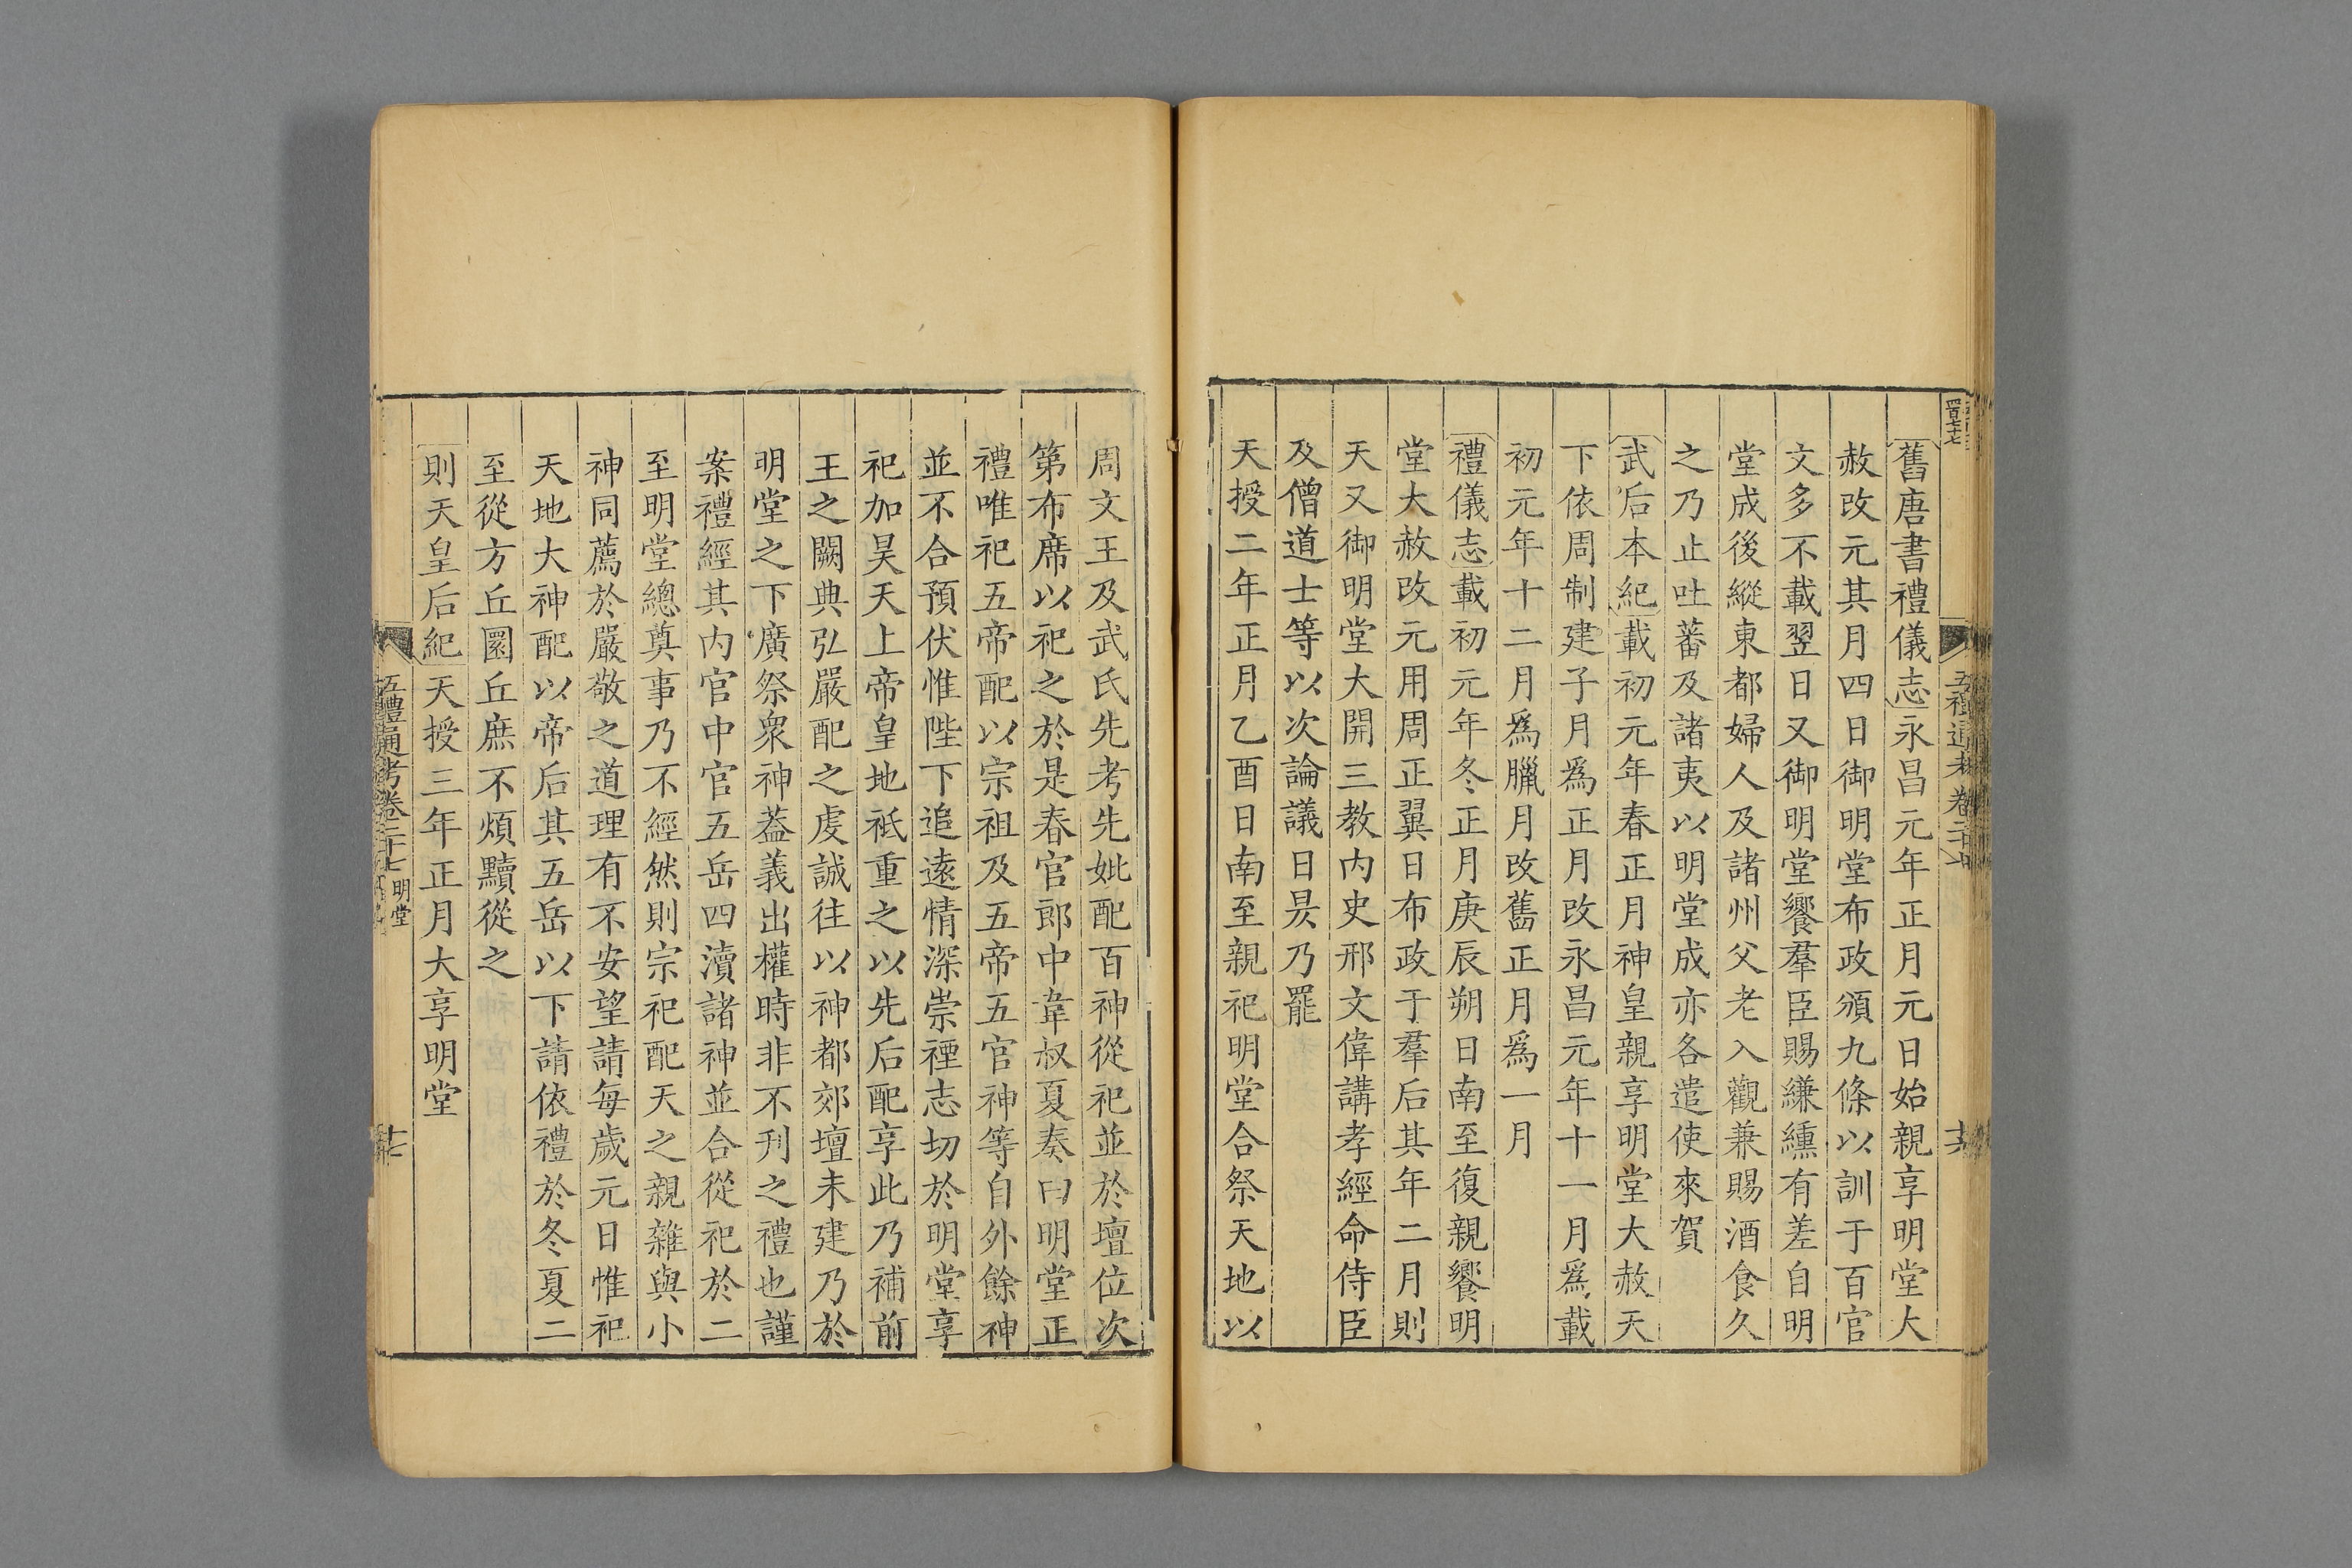 舊唐書禮儀志永昌元年正月元日始親享明堂大
赦改元其月四日御明堂布政頒九條以訓于百官
文多不載翌日又御明堂饗羣臣賜縑纁有差自明
堂成後縱東都婦人及諸州父老入觀兼賜酒食久
之乃止吐蕃及諸夷以明堂成亦各遣使來賀
武后本紀載初元年春正月神皇親享明堂大赦天
下依周制建子月爲正月改永昌元年十一月爲載
初元年十二月爲臘月改舊正月爲一月
禮儀志載初元年冬正月庚辰朔日南至復親饗明
堂大赦改元用周正翼日布政于羣后其年二月則
天又御明堂大開三教内史邢文偉講孝經命侍臣
及僧道士等以次論議日昃乃罷
天授二年正月乙酉日南至親祀明堂合祭天地以
周文王及武氏先考先妣配百神從祀並於壇位次
第布席以祀之於是春官郎中韋叔夏奏曰明堂正
禮唯祀五帝配以宗祖及五帝五官神等自外餘神
並不合預伏惟陛下追遠情深崇禋志切於明堂享
祀加昊天上帝皇地祇重之以先后配享此乃補前
王之闕典弘嚴配之虔誠往以神都郊壇未建乃於
明堂之下廣祭衆神葢義出權時非不刊之禮也謹
案禮經其内官中官五岳四瀆諸神並合從祀於二
至明堂總奠事乃不經然則宗祀配天之親雜與小
神同薦於嚴敬之道理有不安望請每歲元日惟祀
天地大神配以帝后其五岳以下請依禮於冬夏二
至從方丘圜丘庶不煩黷從之
則天皇后紀天授三年正月大享明堂
五禮通考卷二十七 明堂